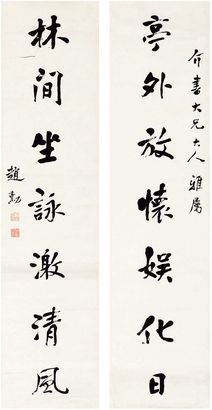 介書大兄大人雅屬
亭外放懷娛化日
林間坐詠激清風
趙勳